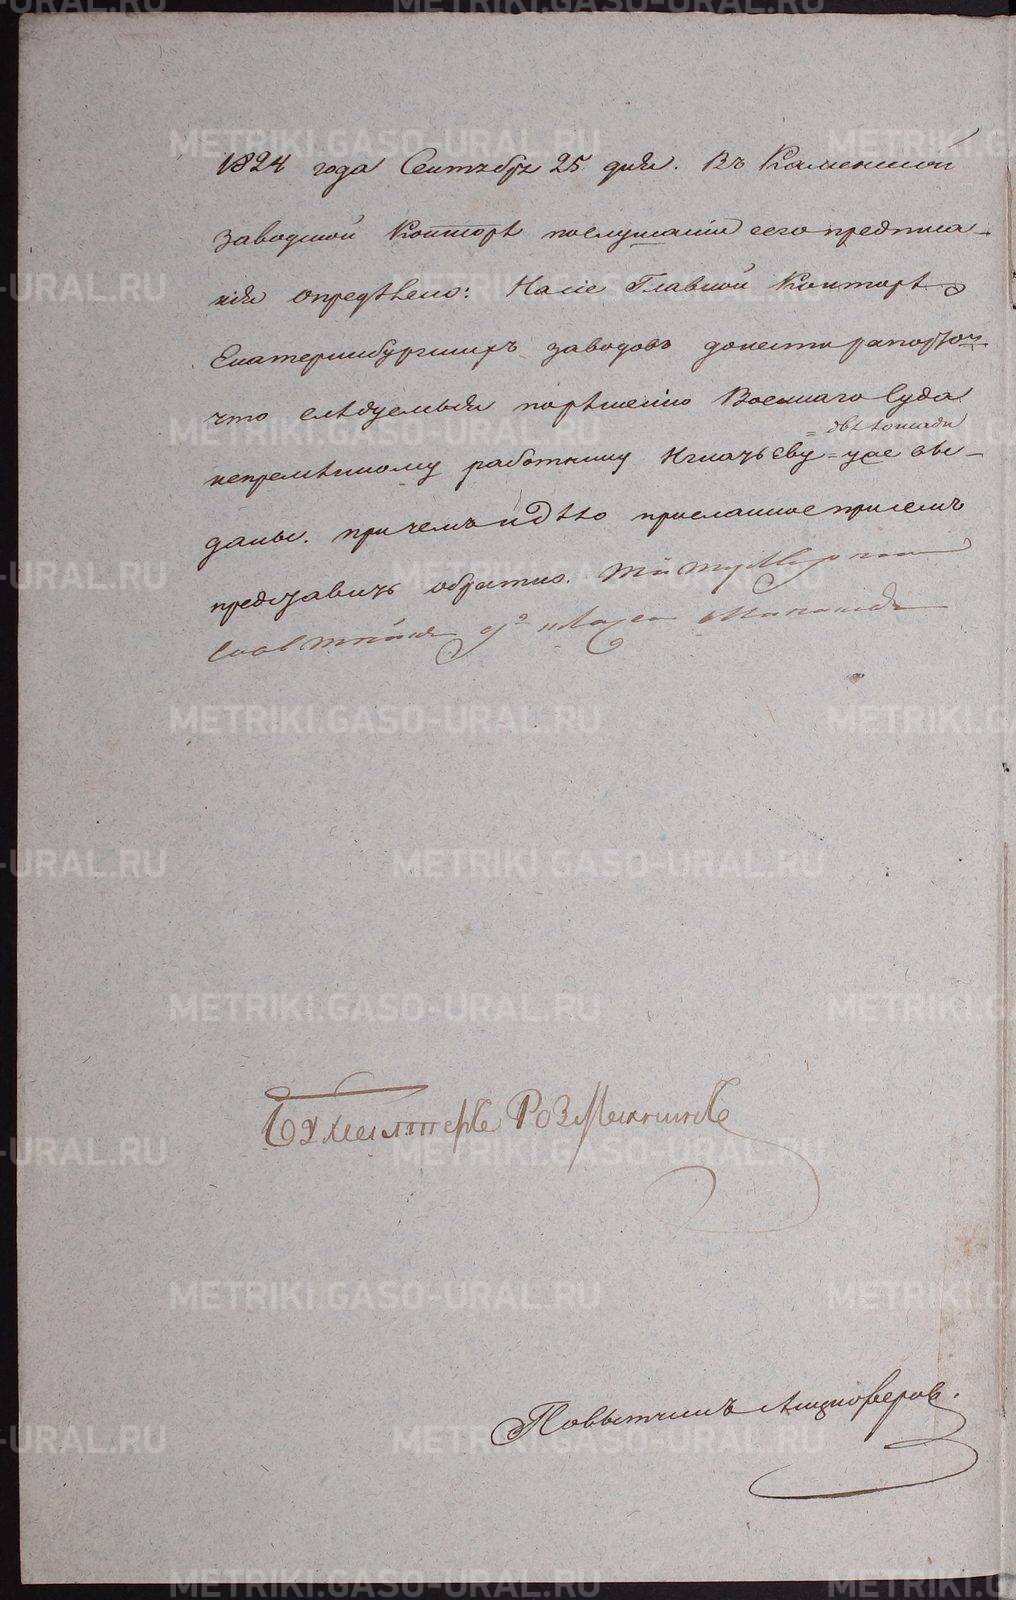 1824 года Сентября 25 дня. Въ Каменской
заводской Конторѣ послушаніи сего предписа-
нія опредѣлено: На сіе Главной Конторѣ
Екатеринбургскихъ заводовъ донести рапортом
что слѣдуемыя порѣшенію Военнаго Суда
=двѣ лошади
непремѣнному работнику Игнатьеву = уже вы-
даны. при чемъ и дѣло присланное при семъ
представить обратно.
Бухгалтеръ
Повытчикъ
METRIKI.GASO-URAL.RU